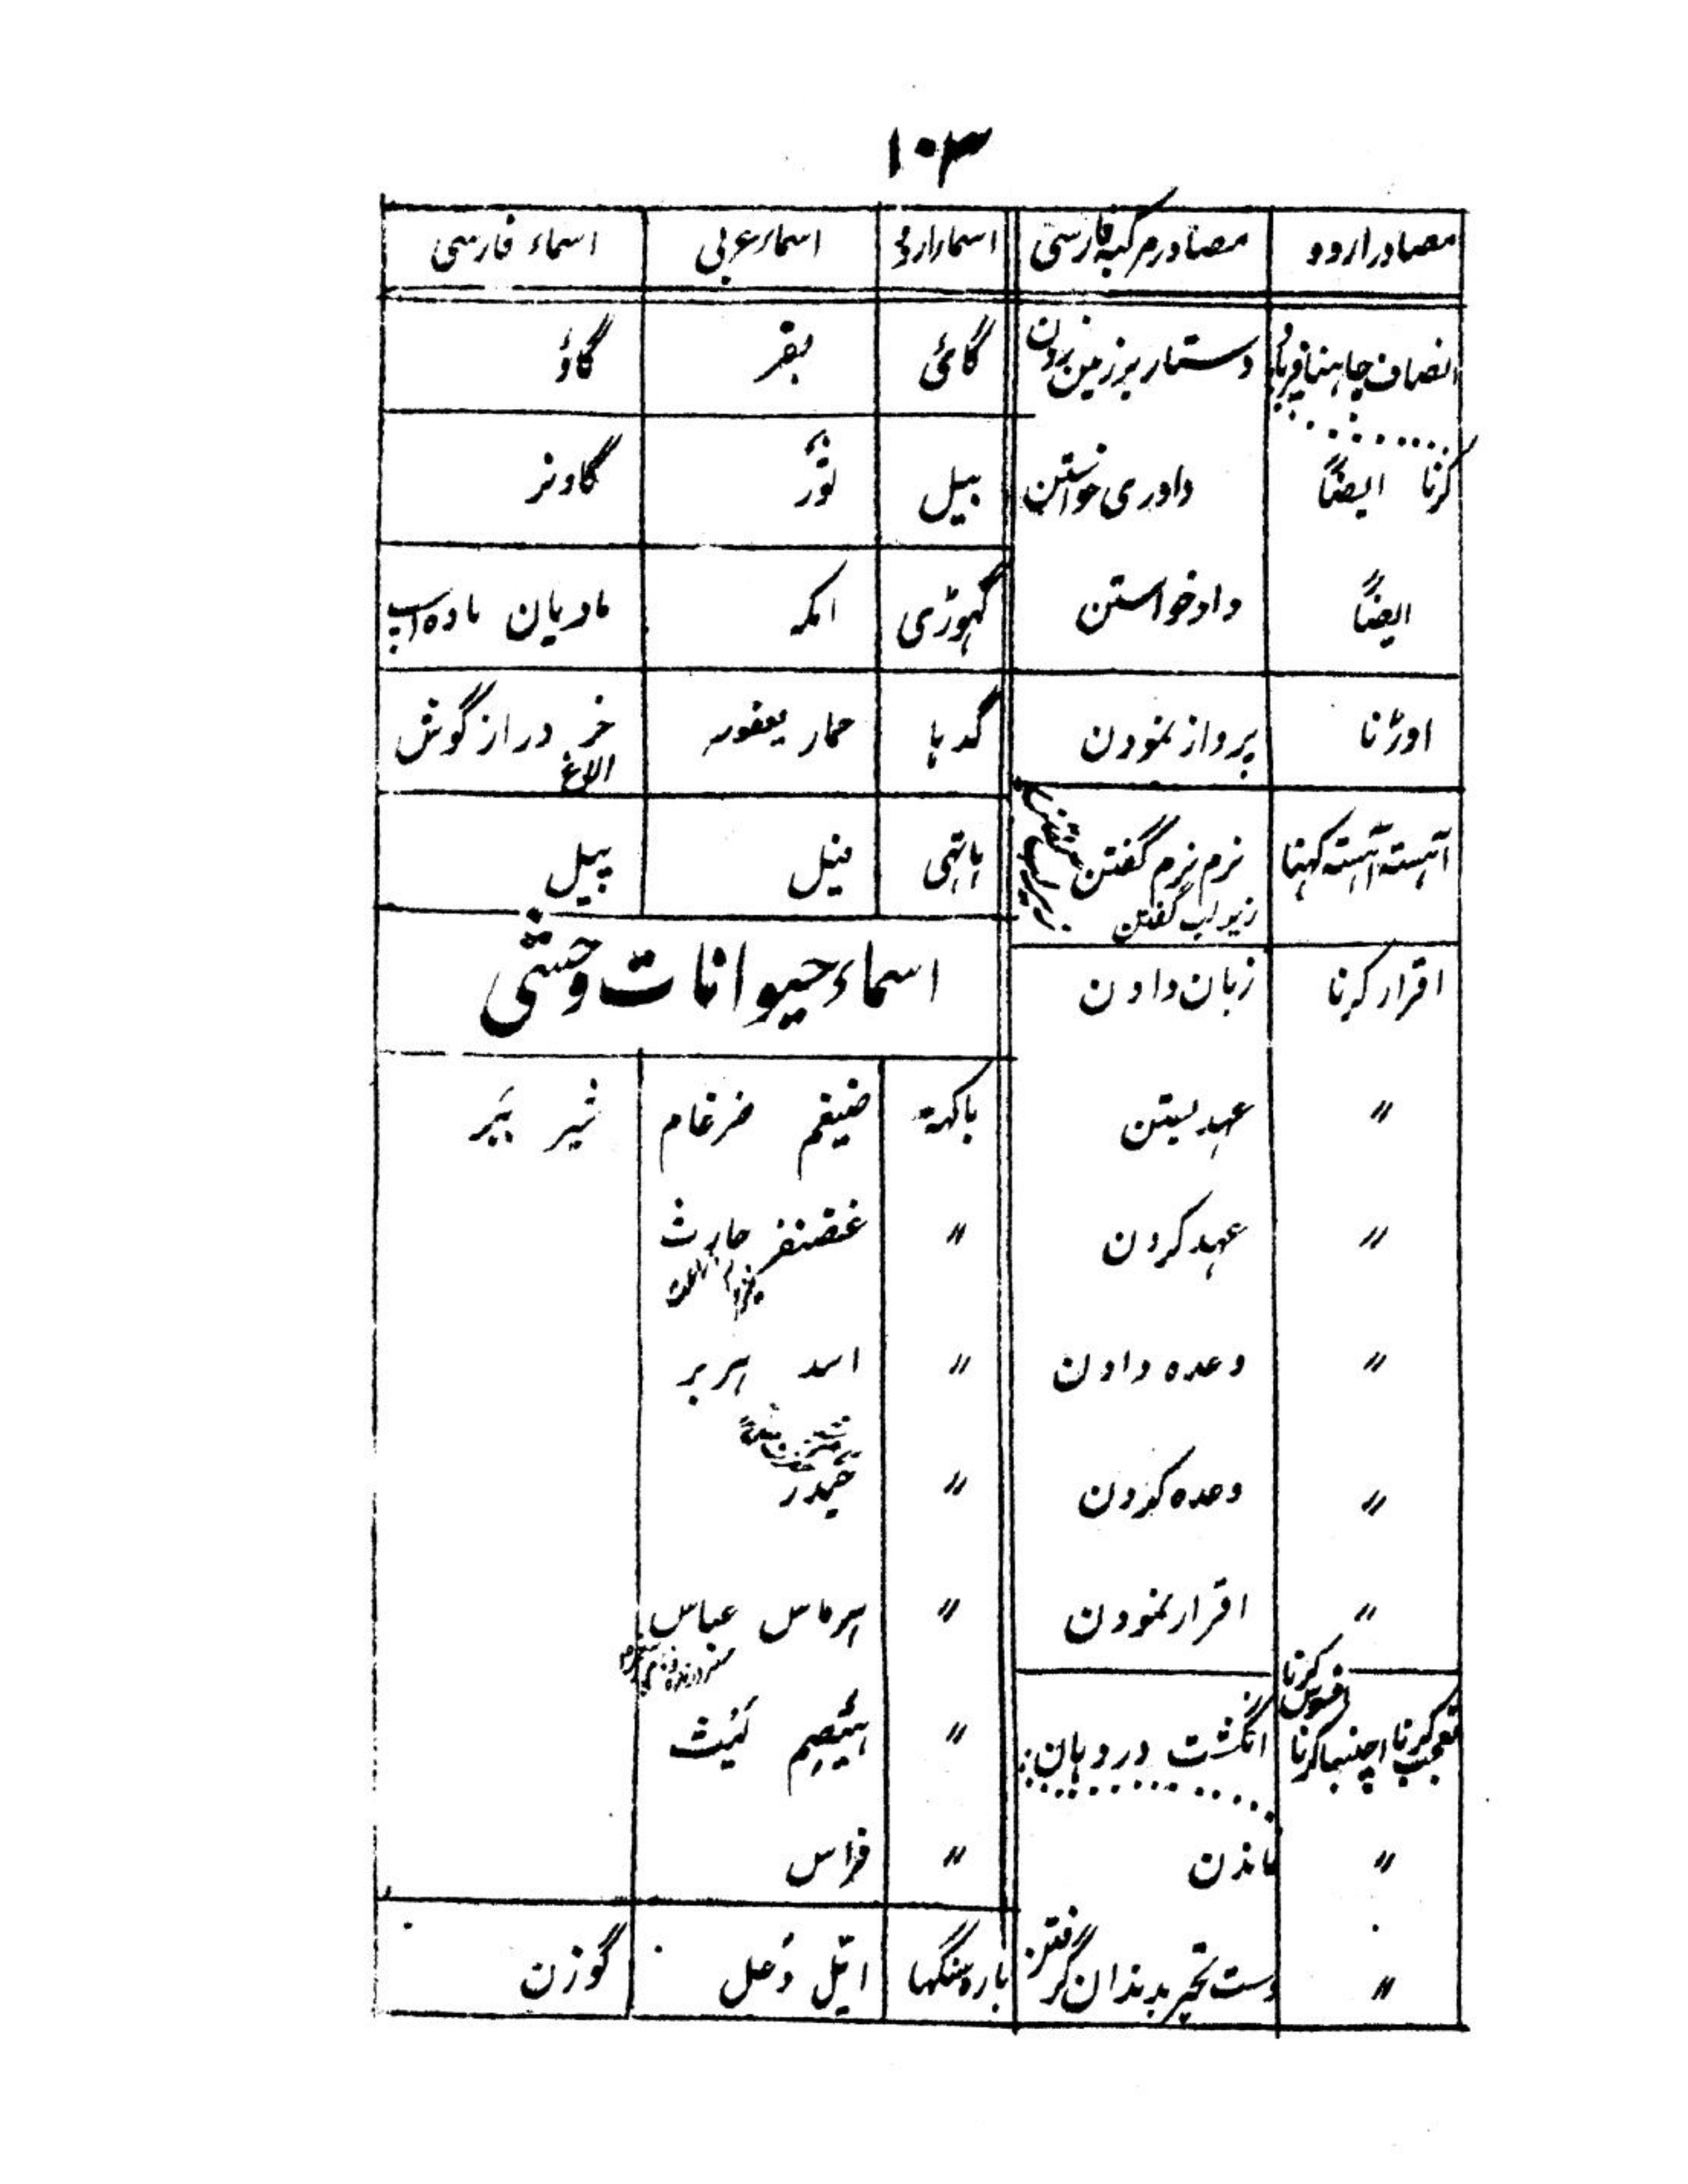 ۱۰۳
مصادر اردو | مصادر مرکبہ فارسی | اسماء اردو | اسماء عربی | اسماء فارسی
انصاف چاہنا فریاد | دستار بر زمین زدن | گائی | بقر | گاؤ
کرنا ایضاً | داوری خواستن | بیل | ثَوْر | گاونر
ایضاً | دادخواستن | گہوڑی | امکہ | مادیان مادہ اسپ
اوڑنا | پرواز نمودن | گدہا | حمار یعفور | خر دراز گوش
الاغ
آہستہ آہستہ کہنا | نرم نرم گفتن | ہاتہی | فیل | پیل
زیر لب گفتن
اسماء حیوانات وحشی
اقرار کرنا | زبان دادن
〃 | عہد بستن | باگہہ | ضیغم ضرغام | شیر ببر
〃 | عہد کردن | 〃 | غضنفر حارث
〃 | وعدہ دادن | 〃 | اسد ہزبر
〃 | وعدہ کردن | 〃 | حَیدَر
〃 | اقرار نمودن | 〃 | ہرماس عباس
افسوس کرنا
تعجب کرنا اچنبا کرنا | انگشت در دہان | 〃 | ہَیصَم لَیث
〃 | ماندن | 〃 | فراس
〃 | دست تحیر بدندان گرفتن | بارہ سنگہا | ایّل وَعل | گوزن